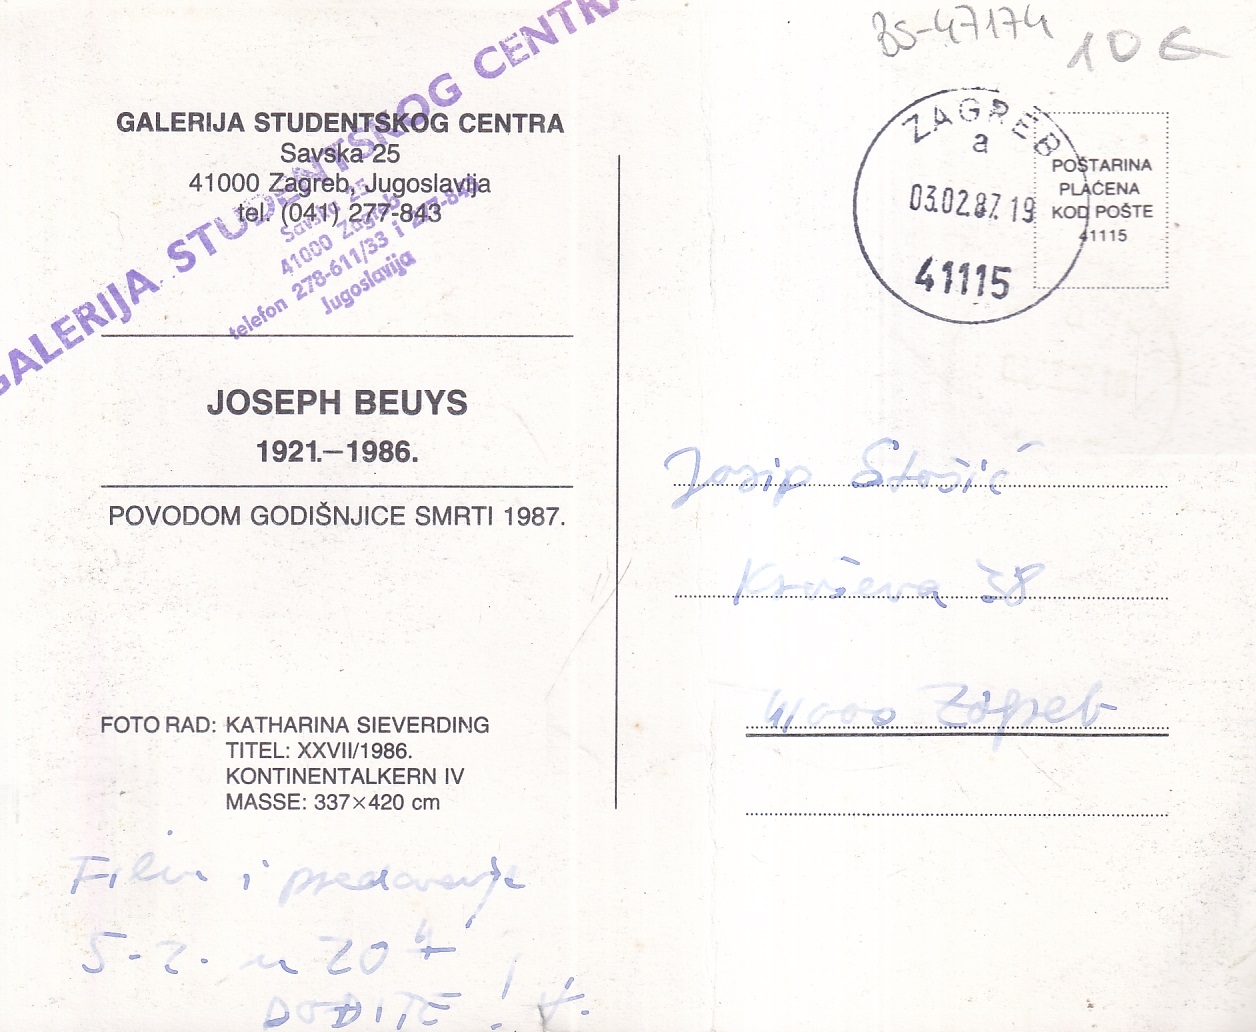 BS-47174
10 €
GALERIJA STUDENTSKOG CENTRA
Savska 25
41000 Zagreb, Jugoslavija
tel. (041) 277-843
GALERIJA STUDENTSKOG CENTRA
Savska 25
41000 Zagreb
telefon 278-611/33 i 277-843
Jugoslavija
JOSEPH BEUYS
1921.–1986.
POVODOM GODIŠNJICE SMRTI 1987.
FOTO RAD: KATHARINA SIEVERDING
TITEL: XXVII/1986.
KONTINENTALKERN IV
MASSE: 337×420 cm
Film i predavanje
5.2. u 20 h
DOĐITE!
ZAGREB
a
03.02.87. 19
41115
POŠTARINA
PLAĆENA
KOD POŠTE
41115
Josip Stošić
38
41000 Zagreb